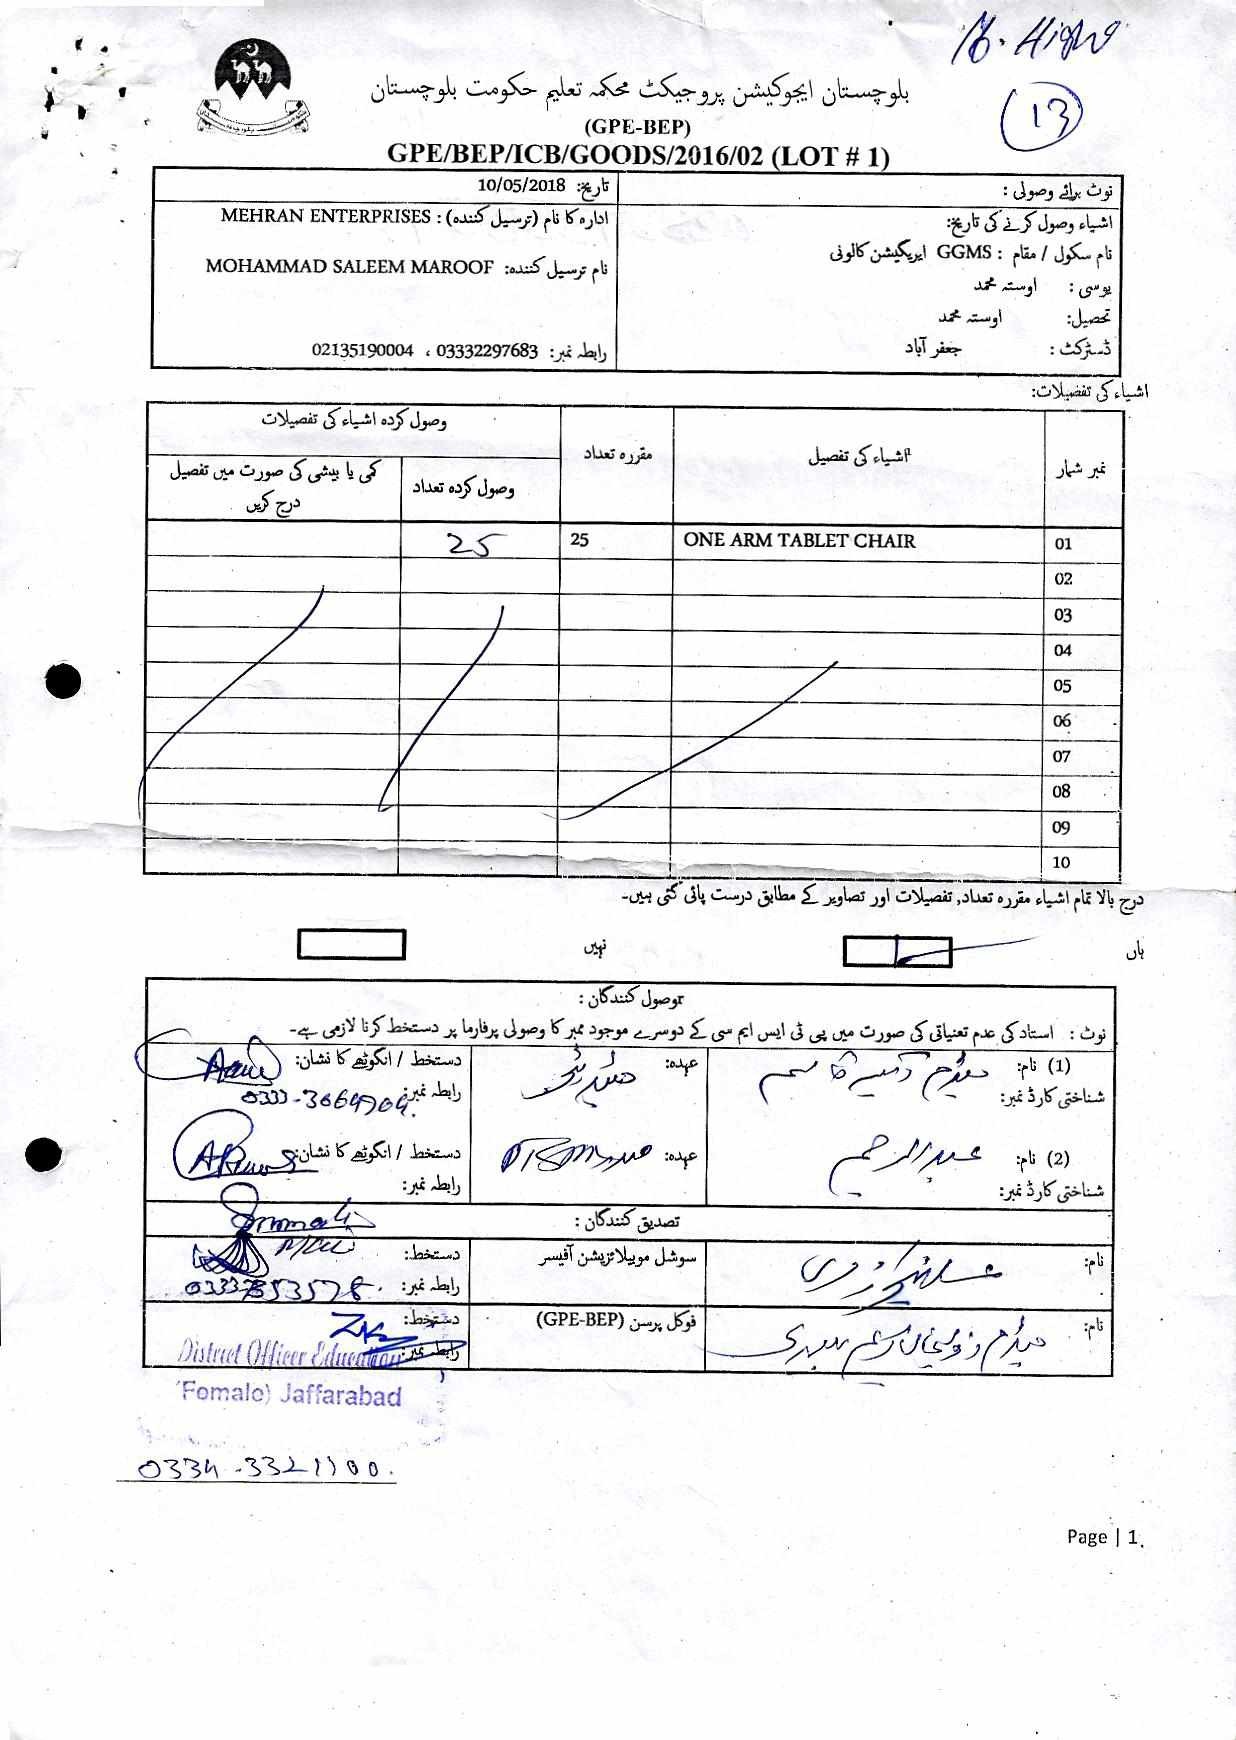 M. High
13
بلوچستان ایجوکیشن پروجیکٹ محکمہ تعلیم حکومت بلوچستان
(GPE-BEP)
GPE/BEP/ICB/GOODS/2016/02 (LOT # 1)
نوٹ برائے وصولی :
تاریخ: 10/05/2018
اشیاء وصول کرنے کی تاریخ:
ادارہ کا نام (ترسیل کنندہ) : MEHRAN ENTERPRISES
نام سکول / مقام : GGMS ایریگیشن کالونی
نام ترسیل کنندہ: MOHAMMAD SALEEM MAROOF
یوسی : اوستہ محمد
تحصیل: اوستہ محمد
ڈسٹرکٹ : جعفر آباد
رابطہ نمبر: 03332297683 ، 02135190004
اشیاء کی تفصیلات:
نمبر شمار اشیاء کی تفصیل مقررہ تعداد وصول کردہ اشیاء کی تفصیلات
وصول کردہ تعداد کمی یا بیشی کی صورت میں تفصیل درج کریں
01 ONE ARM TABLET CHAIR 25 25
02
03
04
05
06
07
08
09
10
درج بالا تمام اشیاء مقررہ تعداد, تفصیلات اور تصاویر کے مطابق درست پائی گئی ہیں۔
ہاں نہیں
وصول کنندگان :
نوٹ : استاد کی عدم تعنیاتی کی صورت میں پی ٹی ایس ایم سی کے دوسرے موجود ممبر کا وصولی پرفارما پر دستخط کرنا لازمی ہے۔
(1) نام: میڈم آسیہ قاسم عہدہ: دستخط / انگوٹھے کا نشان:
شناختی کارڈ نمبر: رابطہ نمبر: 0333-3664904
(2) نام: عبدالرحیم عہدہ: دستخط / انگوٹھے کا نشان:
شناختی کارڈ نمبر: رابطہ نمبر:
تصدیق کنندگان :
نام: سوشل موبیلائزیشن آفیسر دستخط:
رابطہ نمبر:
نام: فوکل پرسن (GPE-BEP) دستخط:
رابطہ نمبر:
District Officer Education
(Female) Jaffarabad
0334-3321100.
Page | 1